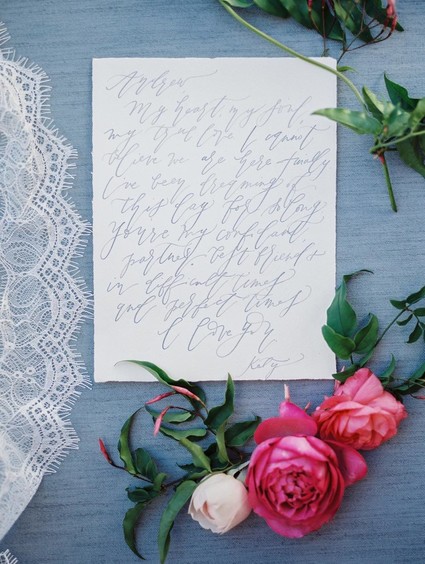 Andrew
My heart, my soul,
my true love I cannot
believe we are here finally
I've been dreaming of
this day for so long
You're my confidant,
partner, best friend +
in difficult times
and perfect times
I love you
Katy